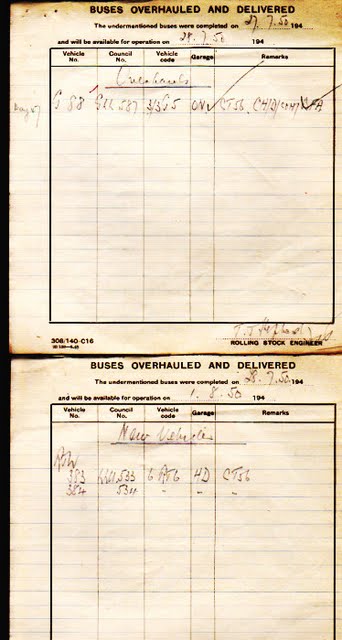 BUSES OVERHAULED AND DELIVERED
The undermentioned buses were completed on 27. 7. 50 194
and will be available for operation on 28. 7. 50 194
Vehicle No. Council No. Vehicle code Garage Remarks
Overhauls
G 88 587 3/3G5 CT56
308/140-C16
ROLLING STOCK ENGINEER
BUSES OVERHAULED AND DELIVERED
The undermentioned buses were completed on 28. 7. 50. 194
and will be available for operation on 1. 8. 50 194
Vehicle No. Council No. Vehicle code Garage Remarks
New Vehicles
383 533 6 HD CT56
384 534 - - -